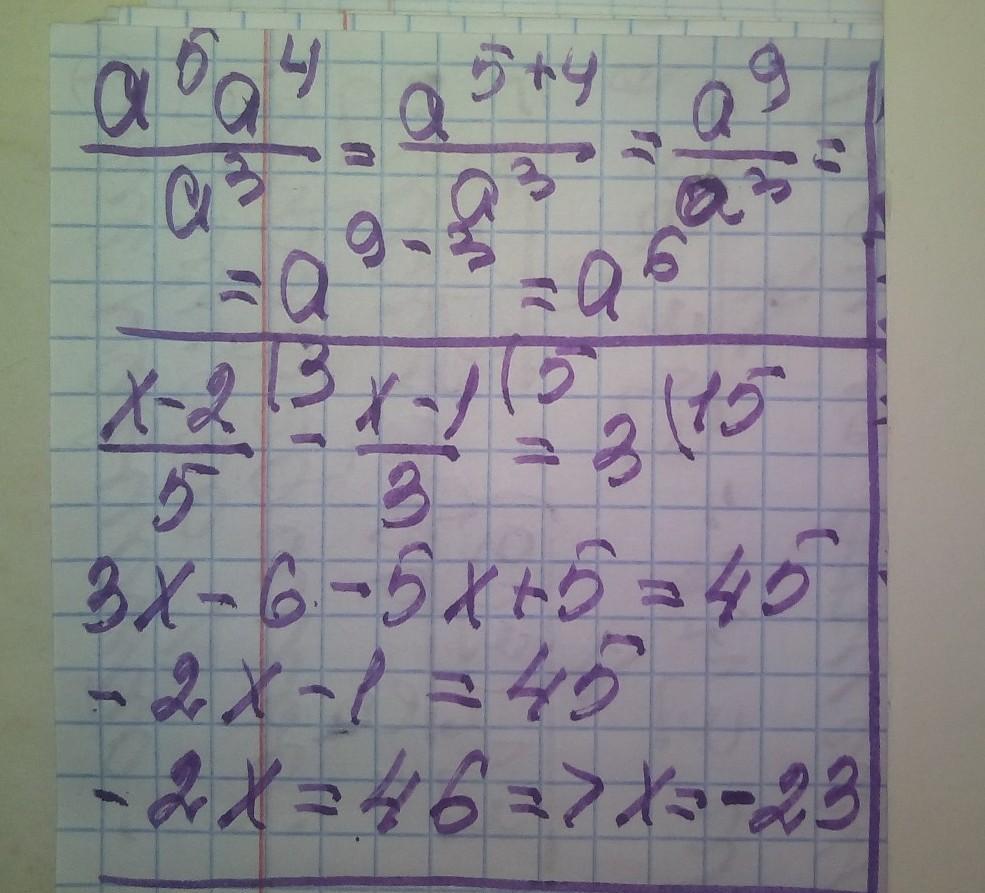 a⁵a⁴/a³ = a⁵⁺⁴/a³ = a⁹/a³ =
= a⁹⁻³ = a⁶
x-2/5 (3 - x-1/3 (5 = 3 (15
3x - 6 - 5x + 5 = 45
- 2x - 1 = 45
- 2x = 46 => x = -23